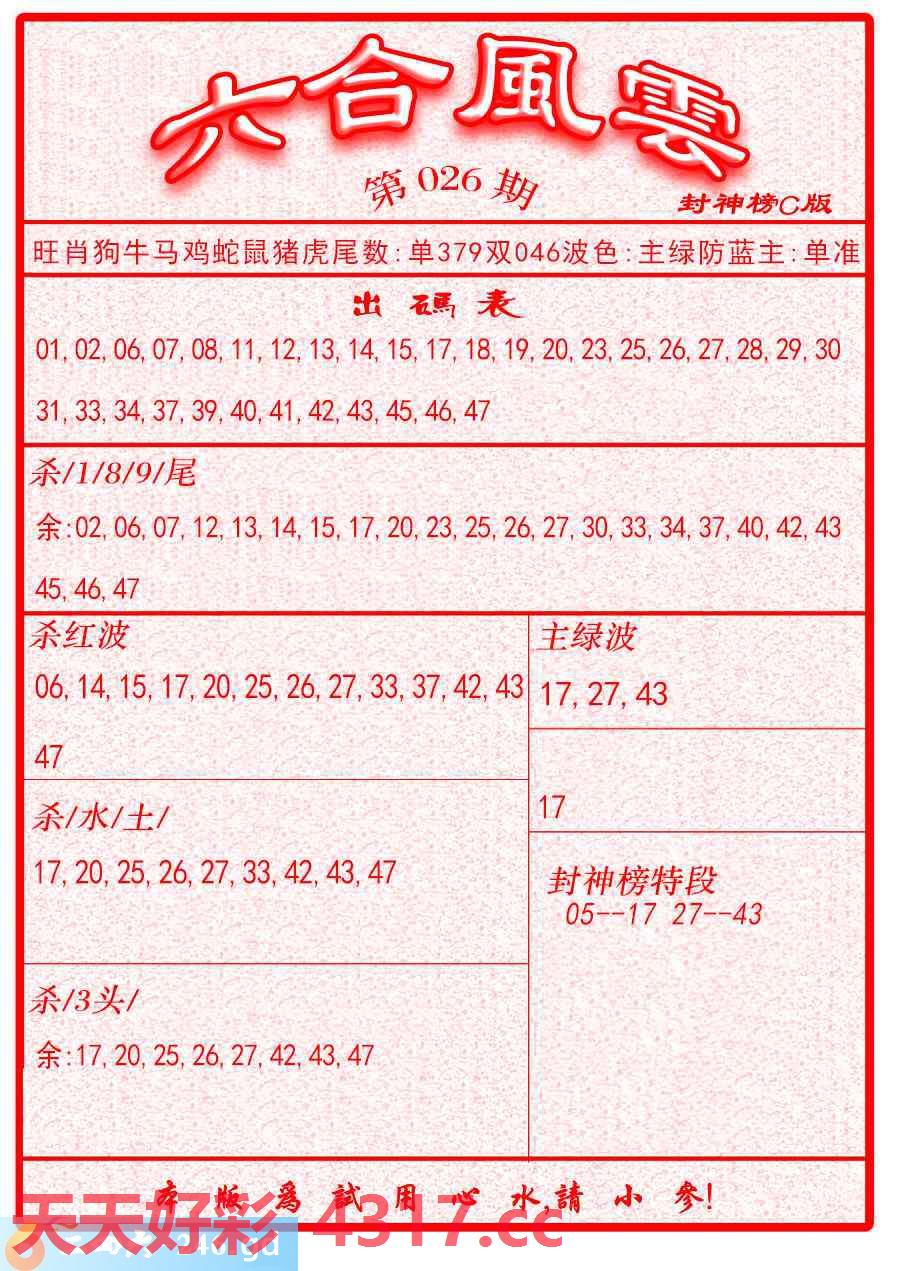 六合風雲
第026期
封神榜C版
旺肖狗牛马鸡蛇鼠猪虎尾数:单379双046波色:主绿防蓝主:单准
出碼表
01,02,06,07,08,11,12,13,14,15,17,18,19,20,23,25,26,27,28,29,30
31,33,34,37,39,40,41,42,43,45,46,47
杀/1/8/9/尾
余:02,06,07,12,13,14,15,17,20,23,25,26,27,30,33,34,37,40,42,43
45,46,47
杀红波
06,14,15,17,20,25,26,27,33,37,42,43
47
主绿波
17,27,43
17
杀/水/土/
17,20,25,26,27,33,42,43,47
封神榜特段
05--17 27--43
杀/3头/
余:17,20,25,26,27,42,43,47
本版爲試用心水,請小参!
天天好彩 4317.cc